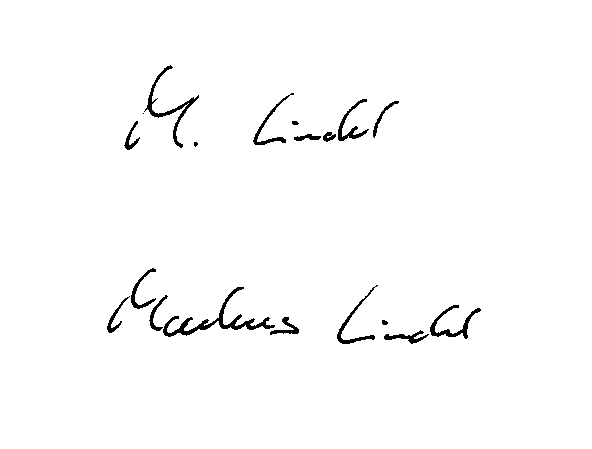 M. Lindl
Markus Lindl